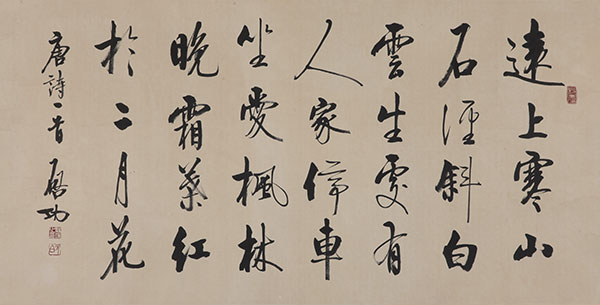 遠上寒山
石徑斜白
雲生處有
人家停車
坐愛楓林
晚霜葉紅
於二月花
唐詩一首 啟功